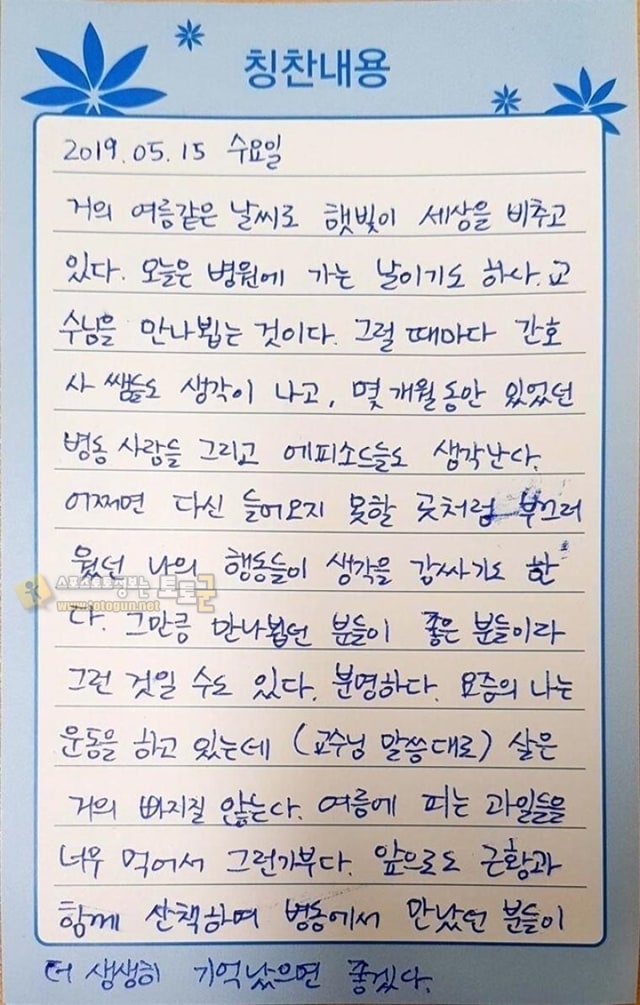 칭찬내용
2019.05.15 수요일
거의 여름같은 날씨로 햇빛이 세상을 비추고
있다. 오늘은 병원에 가는 날이기도 하다. 교
수님을 만나뵙는 것이다. 그럴 때마다 간호
사 쌤들도 생각이 나고, 몇 개월동안 있었던
병동 사람들 그리고 에피소드들도 생각난다.
어쩌면 다신 들어오지 못할 곳처럼 부끄러
웠던 나의 행동들이 생각을 감싸기도 한
다. 그만큼 만나뵙던 분들이 좋은 분들이라
그런 것일 수도 있다. 분명하다. 요즘의 나는
운동을 하고 있는데 (교수님 말씀대로) 살은
거의 빠지질 않는다. 여름에 피는 과일들을
너무 먹어서 그런가부다. 앞으로도 근황과
함께 산책하며 병동에서 만났던 분들이
더 생생히 기억났으면 좋겠다.
스포츠토토정보는 토토군
www.totogun.net